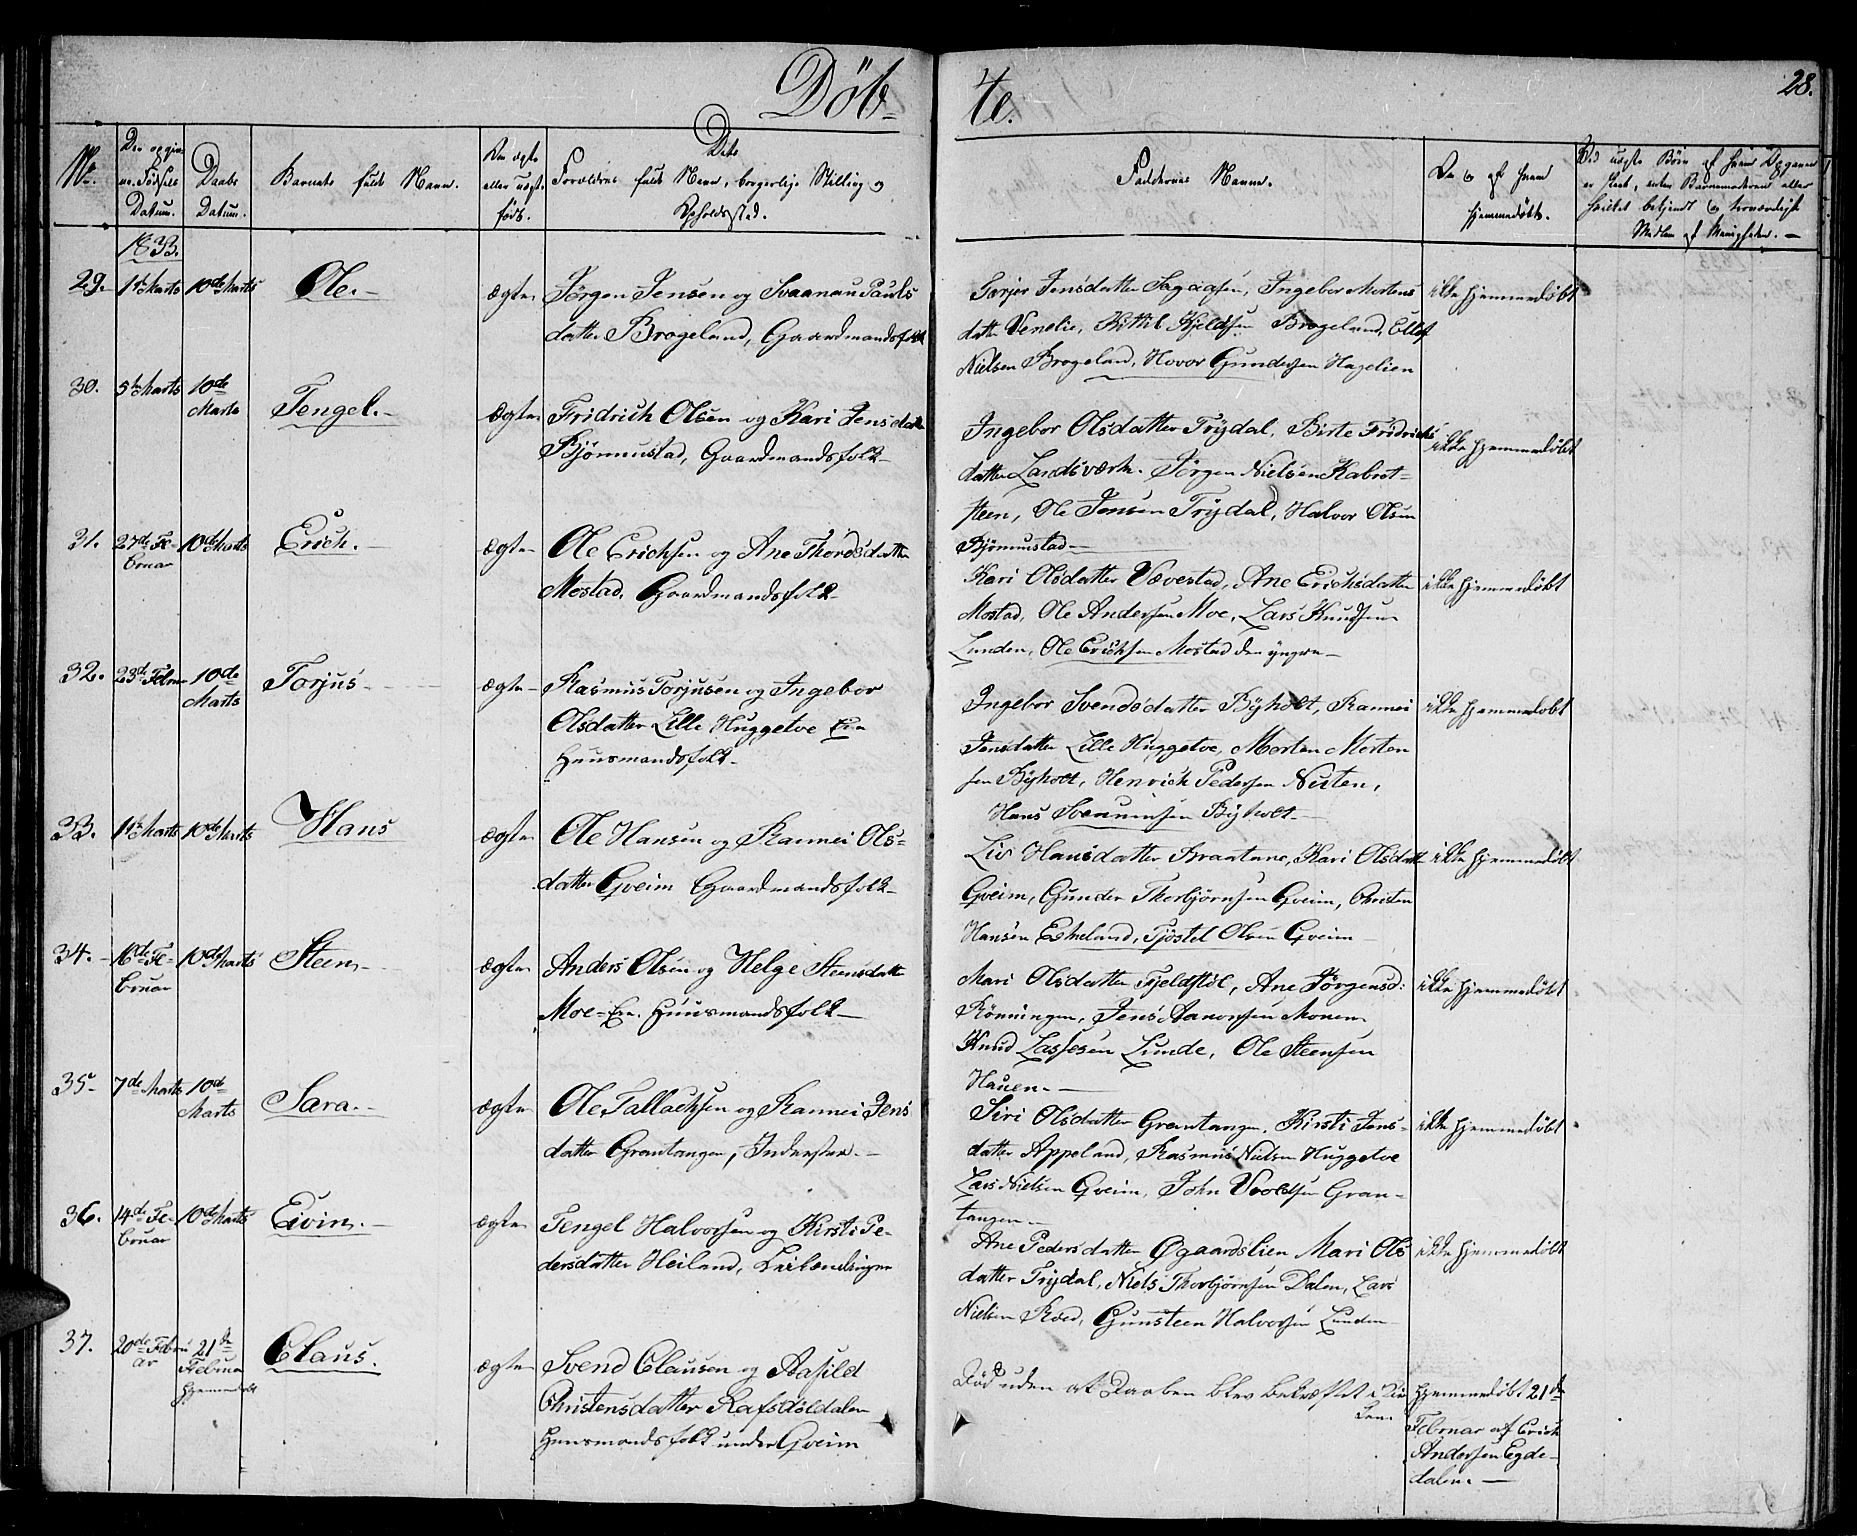 Döb-
te.
28.
No.
Den opgiv-
ne Födsels
Datum.
Daabs
Datum.
Barnets fulde Navn.
Om ægte
eller uægte
födt.
Dets
Forældres fulde Navn, borgerlige Stilling og
Opholdssted.
Faddernes Navne.
Om og af hvem
hjemmedöbt.
1833.
29. 1ste Marts 10de Marts Ole. ægte Jörgen Jensen og Svaanau Pauls
datter Brogeland, Gaardmandsfolk
Tarjer Jensdatter Ingebor Mortens
datter Venelie, Kittil Kjeldsen Brogeland, Ellef
Nielsen Brogeland, Hovor Gundersen Hagelien
ikke hjemmedöbt
30. 5te Marts 10de
Marts
Tengel. ægte Fridrich Olsen og Kari Jensdatter
Björnustad, Gaardmandsfolk
Ingebor Olsdatter Trydal, Birte Fridrichs
datter Landsværk. Jörgen Nielsen Kabret-
steen, Ole Jensen Trydal, Halvor Olsen
Björnustad
ikke hjemmedöbt
31. 27de Fe-
bruar
10de Marts Erich. ægte Ole Erichsen og Ane Thordsdatter
Mostad. Gaardmandsfolk
Kari Olsdatter Vævestad, Ane Erichsdatter
Mostad, Ole Andersen Moe, Lars Knudsen
Lunden, Ole Erichsen Mostad den yngere
ikke hjemmedöbt
32. 23de Febru 10de
Marts
Torjus ægte Rasmus Torjusen og Ingebor
Olsdatter Lille Huggetve Eie
Huusmandsfolk
Ingebor Svendsdatter Byholt, Rannei
Jensdatter Lille Huggetve, Morten Morten
sen Byholt, Henrich Pedersen Nisten,
Hans Svenuinsen Byholt
ikke hjemmedöbt
33. 1ste Marts 10de Marts Hans ægte Ole Hansen og Rannei Ols-
datter Gveim Gaardmandsfolk
Liv Hansdatter Braatane, Kari Olsdatt
Gveim, Gunder Thorbjörnsen Gveim, Christen
Hansen Eskeland, Tjöstel Olsen Gveim
ikke hjemmedöbt
34. 16de Fe-
bruar
10de Marts Steen ægte Anders Olsen og Helge Steensdatter
Moe-Eie. Huusmandsfolk
Mari Olsdatter Fjeldstöl, Ane Jörgensd:
Rönningen, Jens Aanonsen Monen
Knud Lassesen Lunde, Ole Steensen
Hauen.
ikke hjemmedöbt
35. 7de Marts 10de
Marts
Sara. ægte Ole Tallachsen og Rannei Jens
datter Grantangen, Inderster.
Siri Olsdatter Grantangen, Kirsti Jens-
datter Appeland, Rasmus Nielsen Huggetve
Lars Nielsen Gveim, John Uvoldsen Gran-
tangen.
ikke hjemmedöbt
36. 14de Fe-
bruar
10de Marts Eivin. ægte Tengel Halvorsen og Kirsti Pe-
dersdatter Heiland, Leilændinger
Ane Pedersdatter Øgaardslien Mari Ols
datter Trydal, Niels Thorbjörnsen Dalen, Lars
Nielsen Röed, Gunsteen Halvorsen Lunden
ikke hjemmedöbt
37. 20de Febru
ar
21de
Februar
hjemmedöbt
Claus. ægte Svend Clausen og Aasild
Christensdatter Rafsdöldalen
Huusmandsfolk under Gveim
Död uden at Daaben blev bekræftet i Kir
ken.
hjemmedöbt 21de
Februar af Erich
Andersen Egde-
dalen.